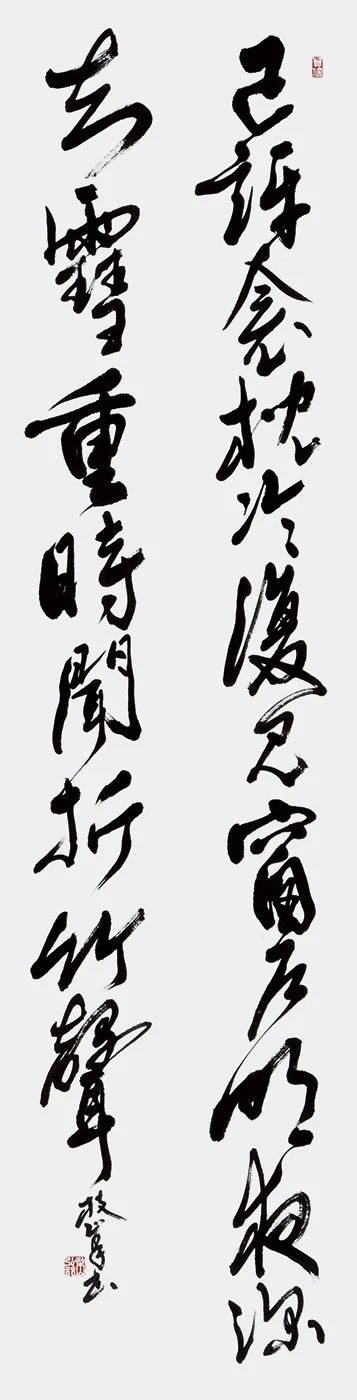 已訝衾枕冷復見窗戶明夜深
知雪重時聞折竹聲